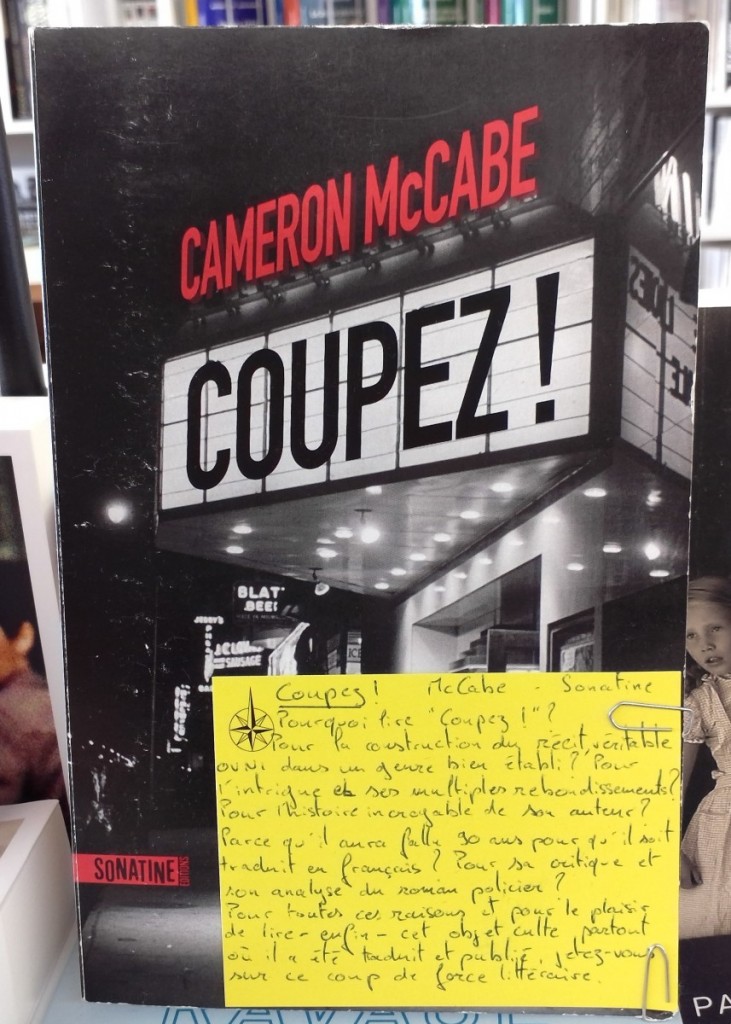 CAMERON McCABE
COUPEZ !
BLAT
BEER
SAUSAGE
SONATINE
EDITIONS
Coupez ! McCabe - Sonatine
Pourquoi lire "Coupez !" ?
Pour la construction du récit, véritable
OVNI dans un genre bien établi ? Pour
l'intrigue et ses multiples rebondissements ?
Pour l'histoire incroyable de son auteur ?
Parce qu'il aura fallu 90 ans pour qu'il soit
traduit en français ? Pour sa critique et
son analyse du roman policier ?
Pour toutes ces raisons et pour le plaisir
de lire - enfin - cet objet culte partout
où il a été traduit et publié, jetez-vous
sur ce coup de force littéraire.
PA